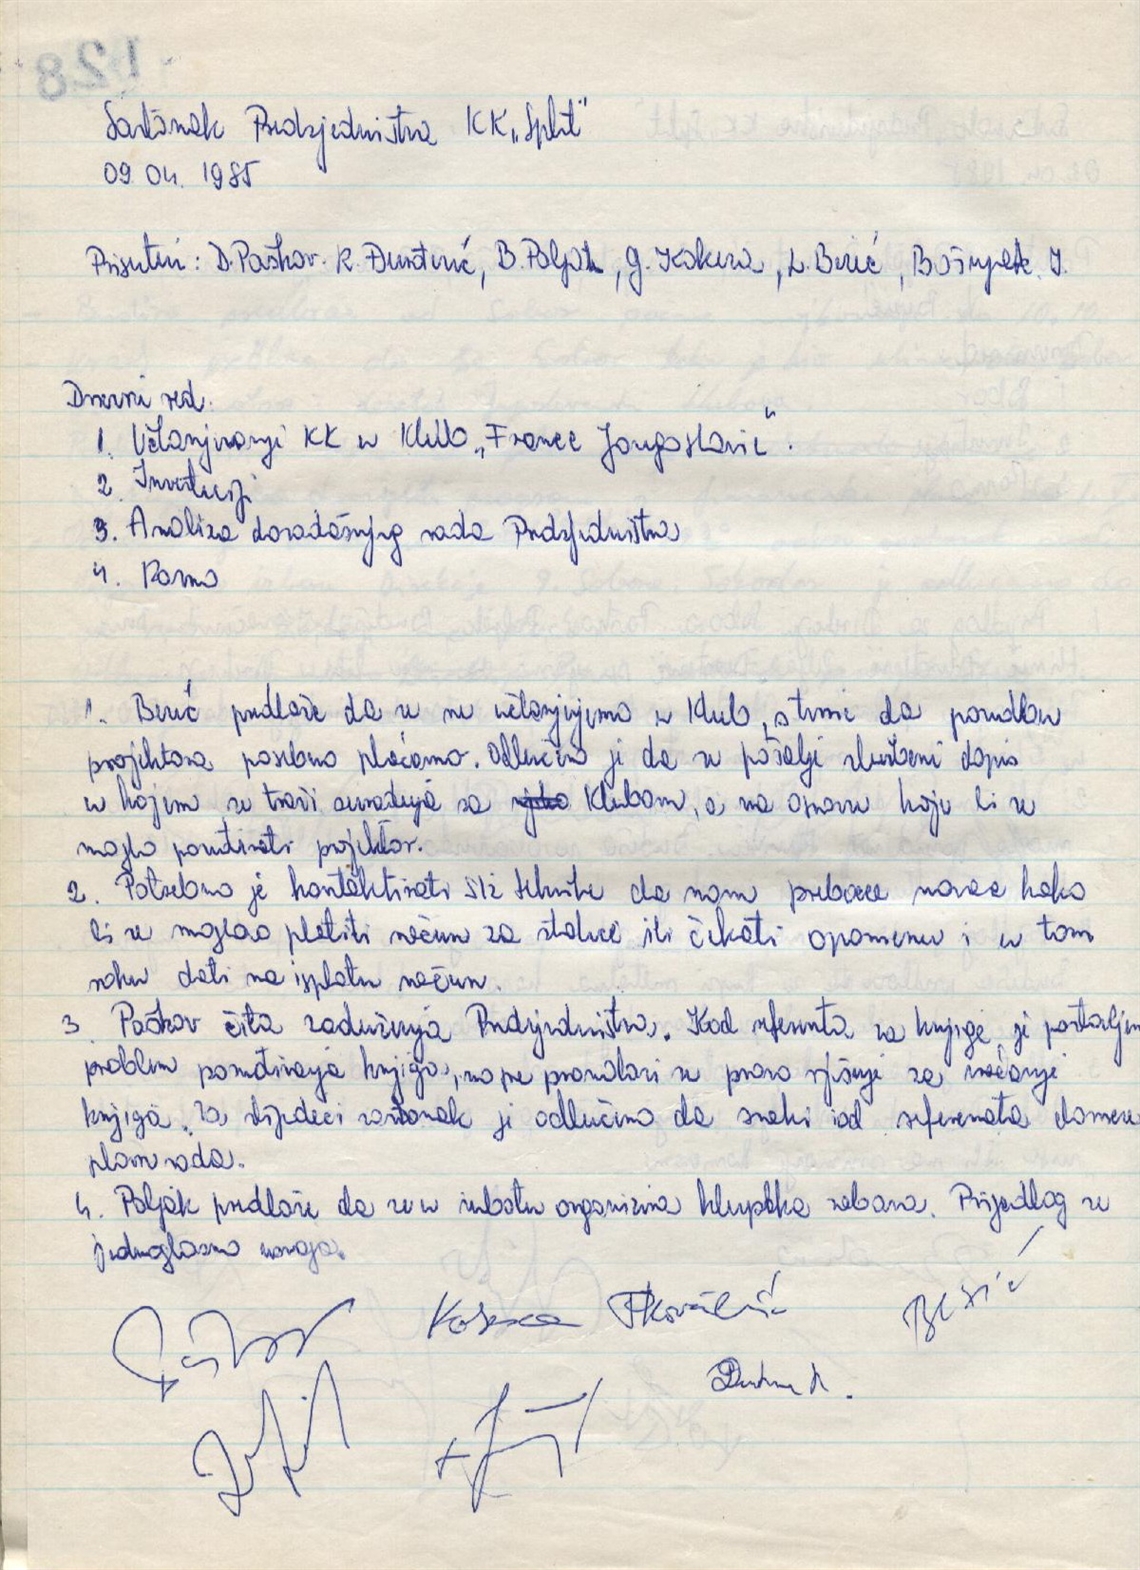 Sastanak Predsjedništva KK „Split"
09. 04. 1985
Prisutni: D. Paškov. R. Đurđević, B. Poljak, G. Kokeza, L. Berić, I.
Dnevni red:
1. Učlanjivanje KK u Klub „France Jougoslavie".
2. Investicije
3. Analiza dosadašnjeg rada Predsjedništva
4. Razno
1. Berić predlaže da se ne učlanjujemo u Klub, s time da posudbu
projektora posebno plaćamo. Odlučeno je da se pošalje službeni dopis
u kojem se traži suradnja sa Klubom, a na osnovu koje bi se
moglo posuđivati projektor.
2. Potrebno je kontaktirati SIZ tehnike da nam prebace novac kako
bi se moglao platiti račun za stalke ili čekati opomenu i u tom
roku dati na isplatu račun.
3. Paškov čita zaduženja Predsjedništva. Kod referenta za knjige je postavljen
problem posuđivanja knjiga, no ne pronalazi se pravo rješenje za vraćanje
knjiga. Za slijedeći sastanak je odlučeno da svaki od referenata donese
plan rada.
4. Poljak predlaže da se u subotu organizira klupska zabava. Prijedlog se
jednoglasno usvaja.
Kokeza Berić